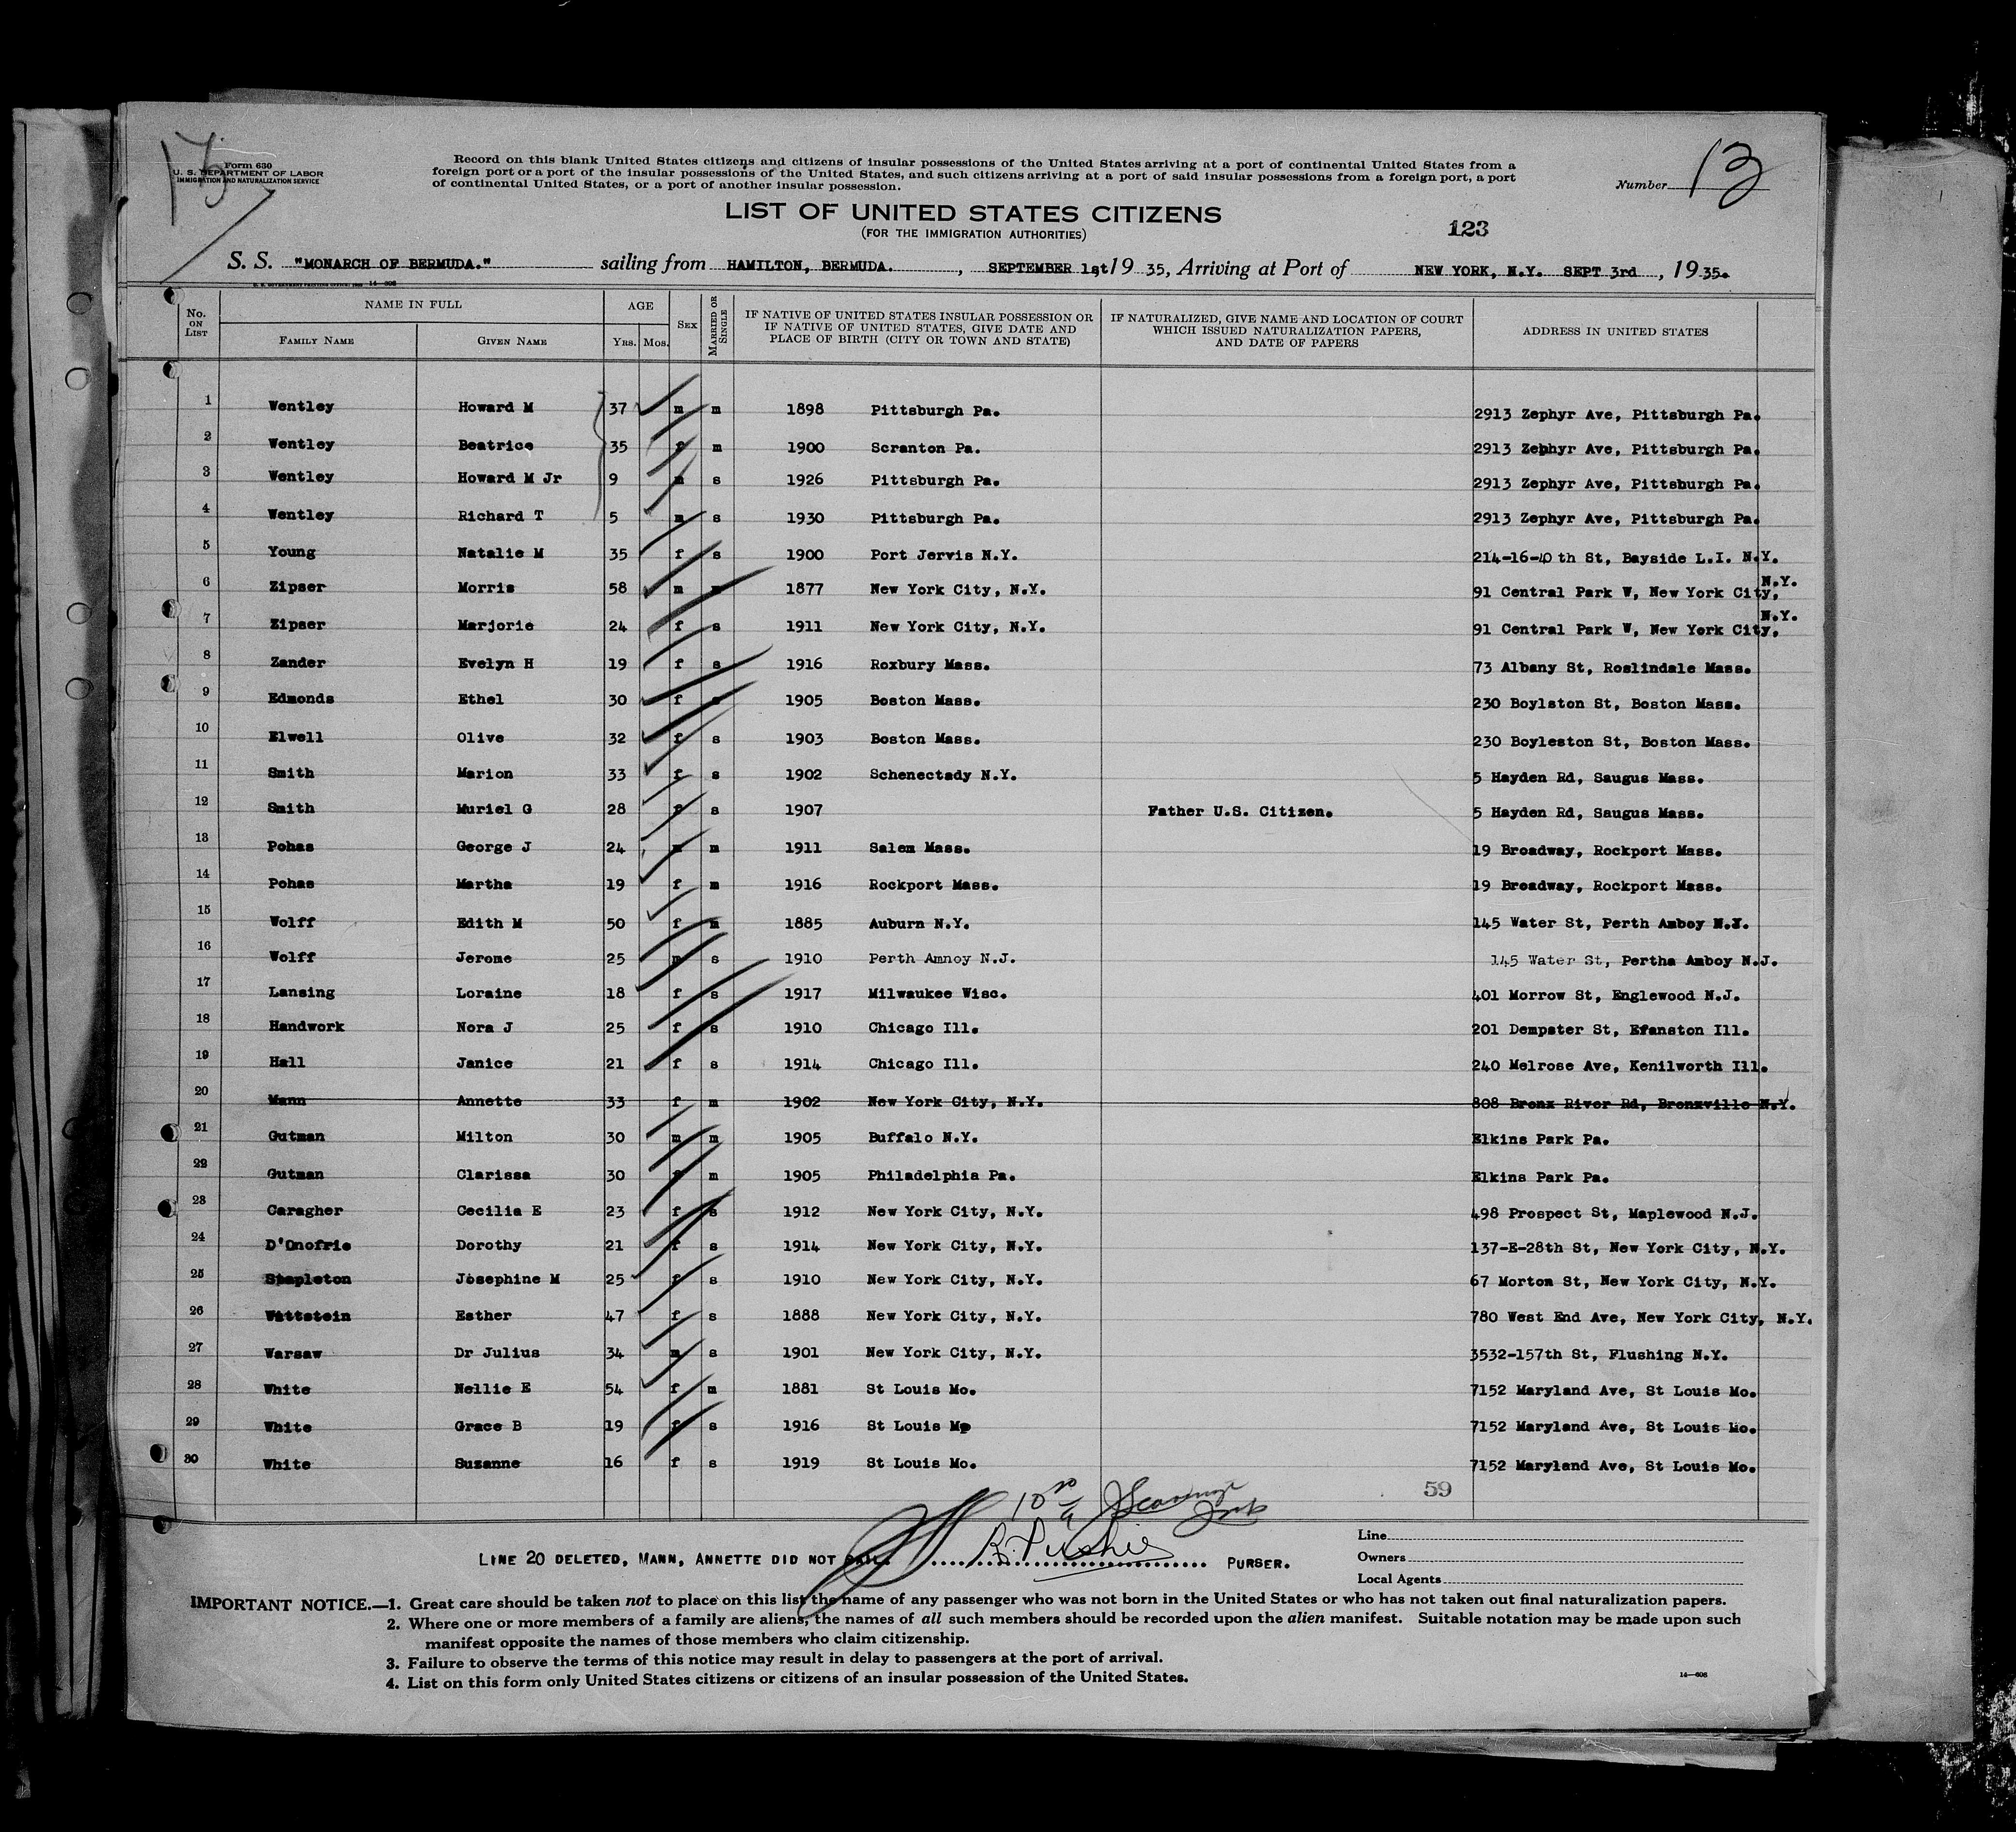 Form 630
U. S. DEPARTMENT OF LABOR
IMMIGRATION AND NATURALIZATION SERVICE
Record on this blank United States citizens and citizens of insular possessions of the United States arriving at a port of continental United States from a
foreign port or a port of the insular possessions of the United States, and such citizens arriving at a port of said insular possessions from a foreign port, a port
of continental United States, or a port of another insular possession.
Number 13
LIST OF UNITED STATES CITIZENS
(FOR THE IMMIGRATION AUTHORITIES)
123
S. S. "MONARCH OF BERMUDA." sailing from HAMILTON, BERMUDA. , SEPTEMBER 1st 19 35, Arriving at Port of NEW YORK, N.Y. SEPT 3rd , 19 35.
No. ON LIST NAME IN FULL FAMILY NAME GIVEN NAME AGE YRS. MOS. SEX MARRIED OR SINGLE IF NATIVE OF UNITED STATES INSULAR POSSESSION OR IF NATIVE OF UNITED STATES, GIVE DATE AND PLACE OF BIRTH (CITY OR TOWN AND STATE) IF NATURALIZED, GIVE NAME AND LOCATION OF COURT WHICH ISSUED NATURALIZATION PAPERS, AND DATE OF PAPERS ADDRESS IN UNITED STATES
1 Wentley Howard M 37 m m 1898 Pittsburgh Pa. 2913 Zephyr Ave, Pittsburgh Pa.
2 Wentley Beatrice 35 f m 1900 Scranton Pa. 2913 Zephyr Ave, Pittsburgh Pa.
3 Wentley Howard M Jr 9 m s 1926 Pittsburgh Pa. 2913 Zephyr Ave, Pittsburgh Pa.
4 Wentley Richard T 5 m s 1930 Pittsburgh Pa. 2913 Zephyr Ave, Pittsburgh Pa.
5 Young Natalie M 35 f s 1900 Port Jervis N.Y. 214-16-40 th St, Bayside L.I. N.Y.
6 Zipser Morris 58 m m 1877 New York City, N.Y. 91 Central Park W, New York City, N.Y.
7 Zipser Marjorie 24 f s 1911 New York City, N.Y. 91 Central Park W, New York City, N.Y.
8 Zander Evelyn H 19 f s 1916 Roxbury Mass. 73 Albany St, Roslindale Mass.
9 Edmonds Ethel 30 f s 1905 Boston Mass. 230 Boylston St, Boston Mass.
10 Elwell Olive 32 f s 1903 Boston Mass. 230 Boyleston St, Boston Mass.
11 Smith Marion 33 f s 1902 Schenectady N.Y. 5 Hayden Rd, Saugus Mass.
12 Smith Muriel G 28 f s 1907 Father U.S. Citizen. 5 Hayden Rd, Saugus Mass.
13 Pohas George J 24 m m 1911 Salem Mass. 19 Broadway, Rockport Mass.
14 Pohas Martha 19 f m 1916 Rockport Mass. 19 Broadway, Rockport Mass.
15 Wolff Edith M 50 f m 1885 Auburn N.Y. 145 Water St, Perth Amboy N.J.
16 Wolff Jerome 25 m s 1910 Perth Amnoy N.J. 145 Water St, Pertha Amboy N.J.
17 Lansing Loraine 18 f s 1917 Milwaukee Wisc. 401 Morrow St, Englewood N.J.
18 Handwork Nora J 25 f s 1910 Chicago Ill. 201 Dempster St, Efanston Ill.
19 Hall Janice 21 f s 1914 Chicago Ill. 240 Melrose Ave, Kenilworth Ill.
20 Mann Annette 33 f m 1902 New York City, N.Y. 808 Bronx River Rd, Bronxville N.Y.
21 Gutman Milton 30 m m 1905 Buffalo N.Y. Elkins Park Pa.
22 Gutman Clarissa 30 f m 1905 Philadelphia Pa. Elkins Park Pa.
23 Caragher Cecilia E 23 f s 1912 New York City, N.Y. 498 Prospect St, Maplewood N.J.
24 D'Onofrie Dorothy 21 f s 1914 New York City, N.Y. 137-E-28th St, New York City, N.Y.
25 Stapleton Josephine M 25 f s 1910 New York City, N.Y. 67 Morton St, New York City, N.Y.
26 Wittstein Esther 47 f s 1888 New York City, N.Y. 780 West End Ave, New York City, N.Y.
27 Warsaw Dr Julius 34 m s 1901 New York City, N.Y. 3532-157th St, Flushing N.Y.
28 White Nellie E 54 f m 1881 St Louis Mo. 7152 Maryland Ave, St Louis Mo.
29 White Grace B 19 f s 1916 St Louis Mo 7152 Maryland Ave, St Louis Mo.
30 White Suzanne 16 f s 1919 St Louis Mo. 7152 Maryland Ave, St Louis Mo.
59
LINE 20 DELETED, MANN, ANNETTE DID NOT SAIL. PURSER.
Line
Owners
Local Agents
IMPORTANT NOTICE.—1. Great care should be taken not to place on this list the name of any passenger who was not born in the United States or who has not taken out final naturalization papers.
2. Where one or more members of a family are aliens, the names of all such members should be recorded upon the alien manifest. Suitable notation may be made upon such
manifest opposite the names of those members who claim citizenship.
3. Failure to observe the terms of this notice may result in delay to passengers at the port of arrival.
4. List on this form only United States citizens or citizens of an insular possession of the United States.
14—608